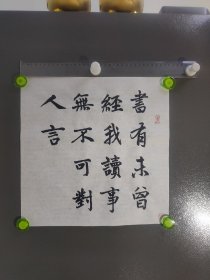 書有未曾
經我讀事
無不可對
人言